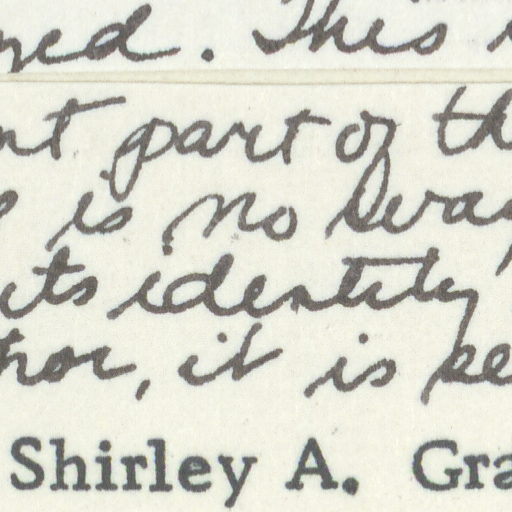 ned. This
nt part of th
is no way
its identity
hor, it is se
Shirley A. Gra